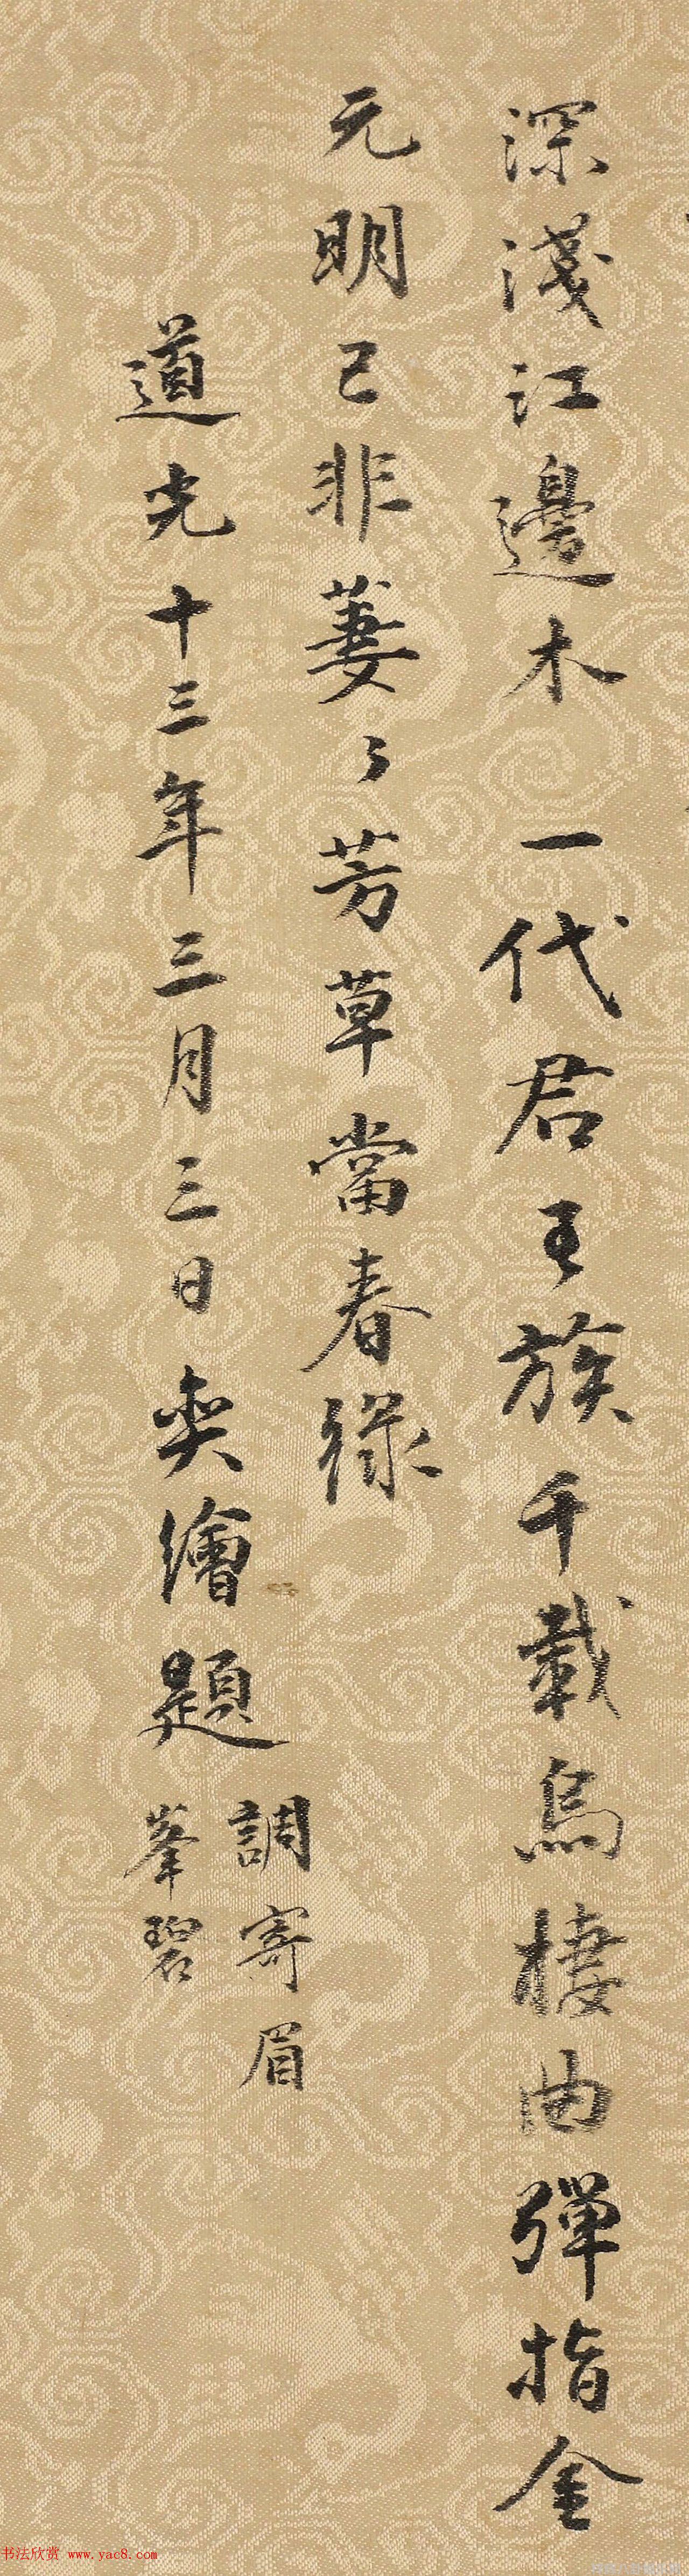 深淺江邊木一代君王族千載烏棲曲彈指金
元明已非萋〻芳草當春綠
道光十三年三月三日奕繪題
調寄眉
峯碧
书法欣赏 www.yac8.com